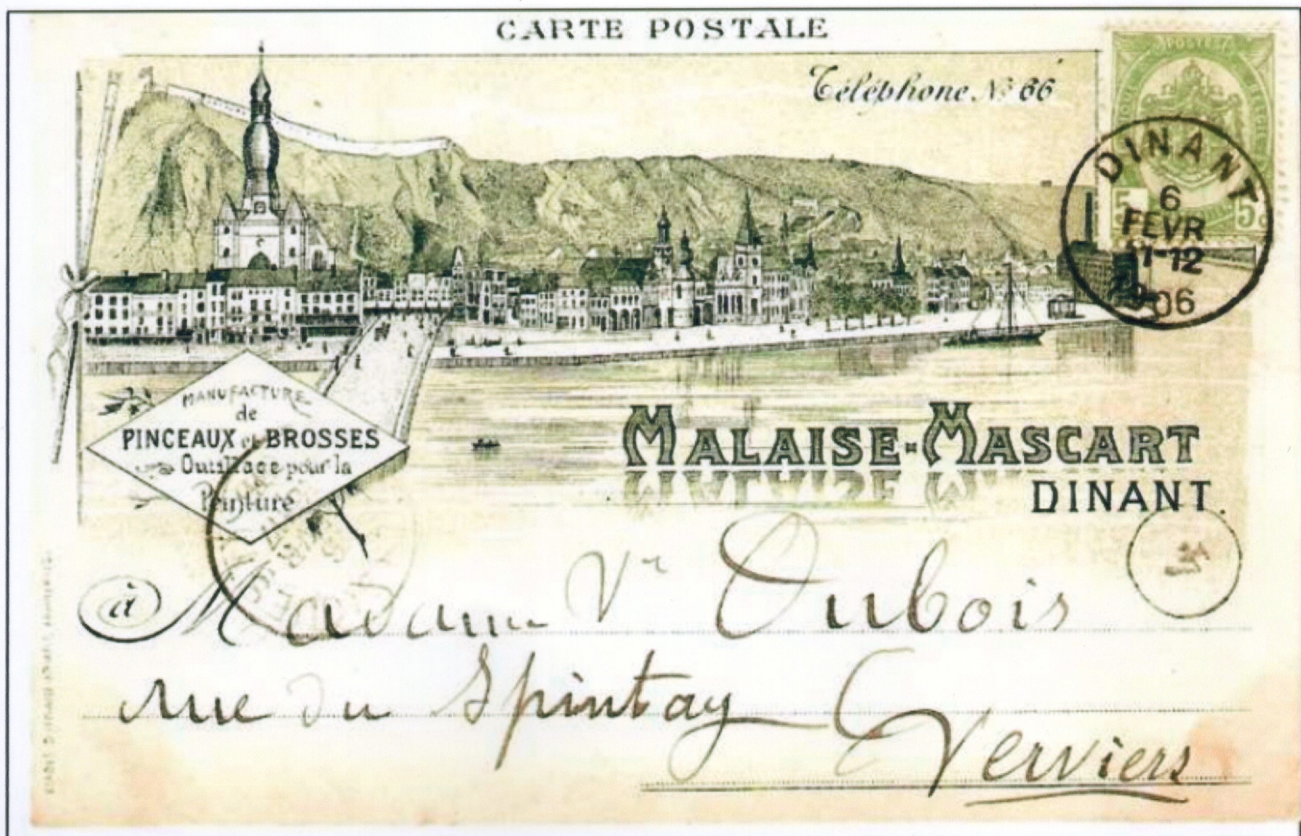 CARTE POSTALE
Téléphone No 66
POSTES
5 5c
DINANT
6
FEVR
11-12
06
MANUFACTURE
de
PINCEAUX et BROSSES
Outillage pour la
Peinture
MALAISE-MASCART
DINANT.
à Madame Vr Dubois
rue du Spintay
Verviers